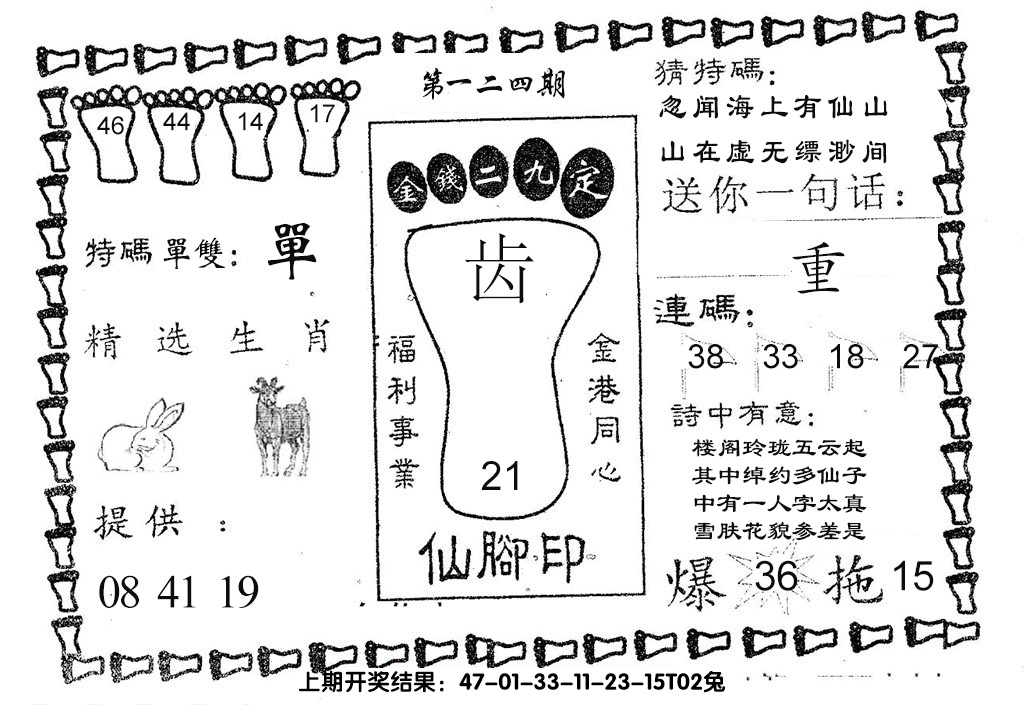 第一二四期
46 44 14 17
特碼單雙：單
精选生肖
提供：
08 41 19
金錢二九定
齿
福利事業
金港同心
21
仙腳印
猜特碼：
忽闻海上有仙山
山在虚无缥渺间
送你一句话：
重
連碼：
38 33 18 27
詩中有意：
楼阁玲珑五云起
其中绰约多仙子
中有一人字太真
雪肤花貌参差是
爆 36 拖 15
上期开奖结果：47-01-33-11-23-15T02兔